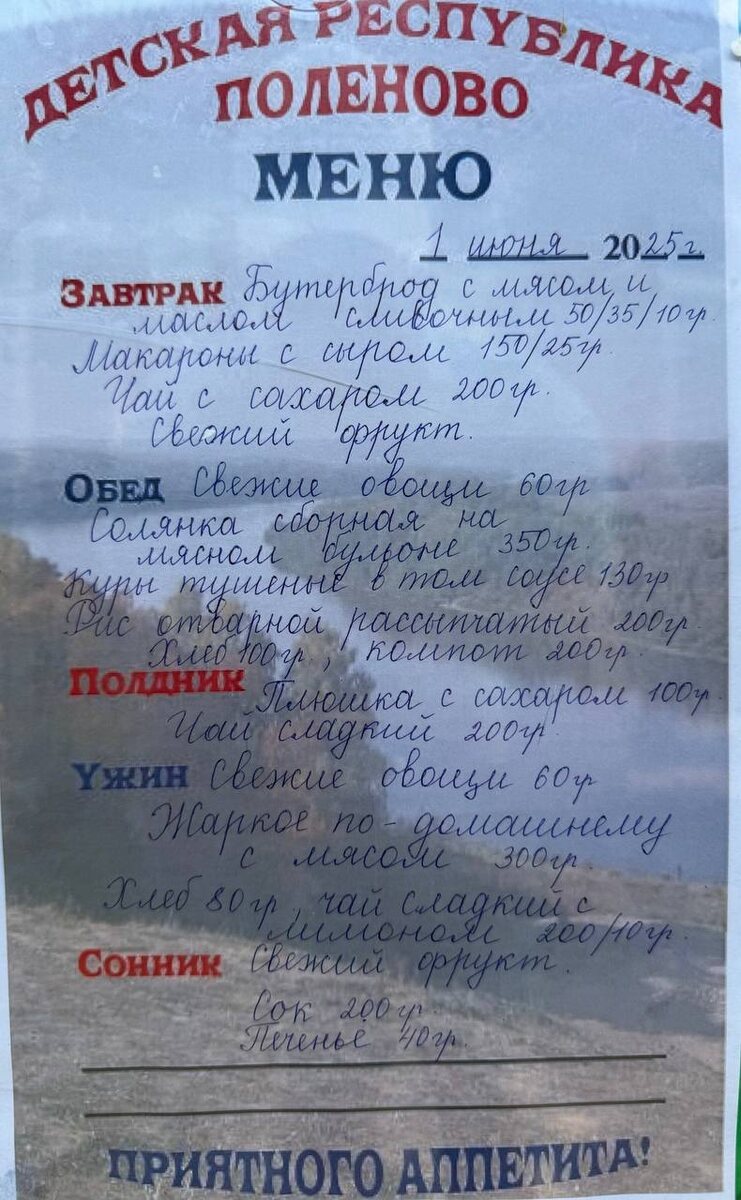 ДЕТСКАЯ РЕСПУБЛИКА
ПОЛЕНОВО
МЕНЮ
1 июня 2025г.
ЗАВТРАК Бутерброд с мясом и
маслом сливочным 50/35/10гр.
Макароны с сыром 150/25гр.
Чай с сахаром 200гр.
Свежий фрукт.
ОБЕД Свежие овощи 60гр
Солянка сборная на
мясном бульоне 350гр.
Куры тушеные в том соусе 130гр
Рис отварной рассыпчатый 200гр.
Хлеб 100гр., компот 200гр.
ПОЛДНИК Плюшка с сахаром 100гр.
Чай сладкий 200гр.
УЖИН Свежие овощи 60гр
Жаркое по-домашнему
с мясом 300гр.
Хлеб 80гр, чай сладкий с
лимоном 200/10гр.
СОННИК Свежий фрукт.
Сок 200гр.
Печенье 40гр.
ПРИЯТНОГО АППЕТИТА!